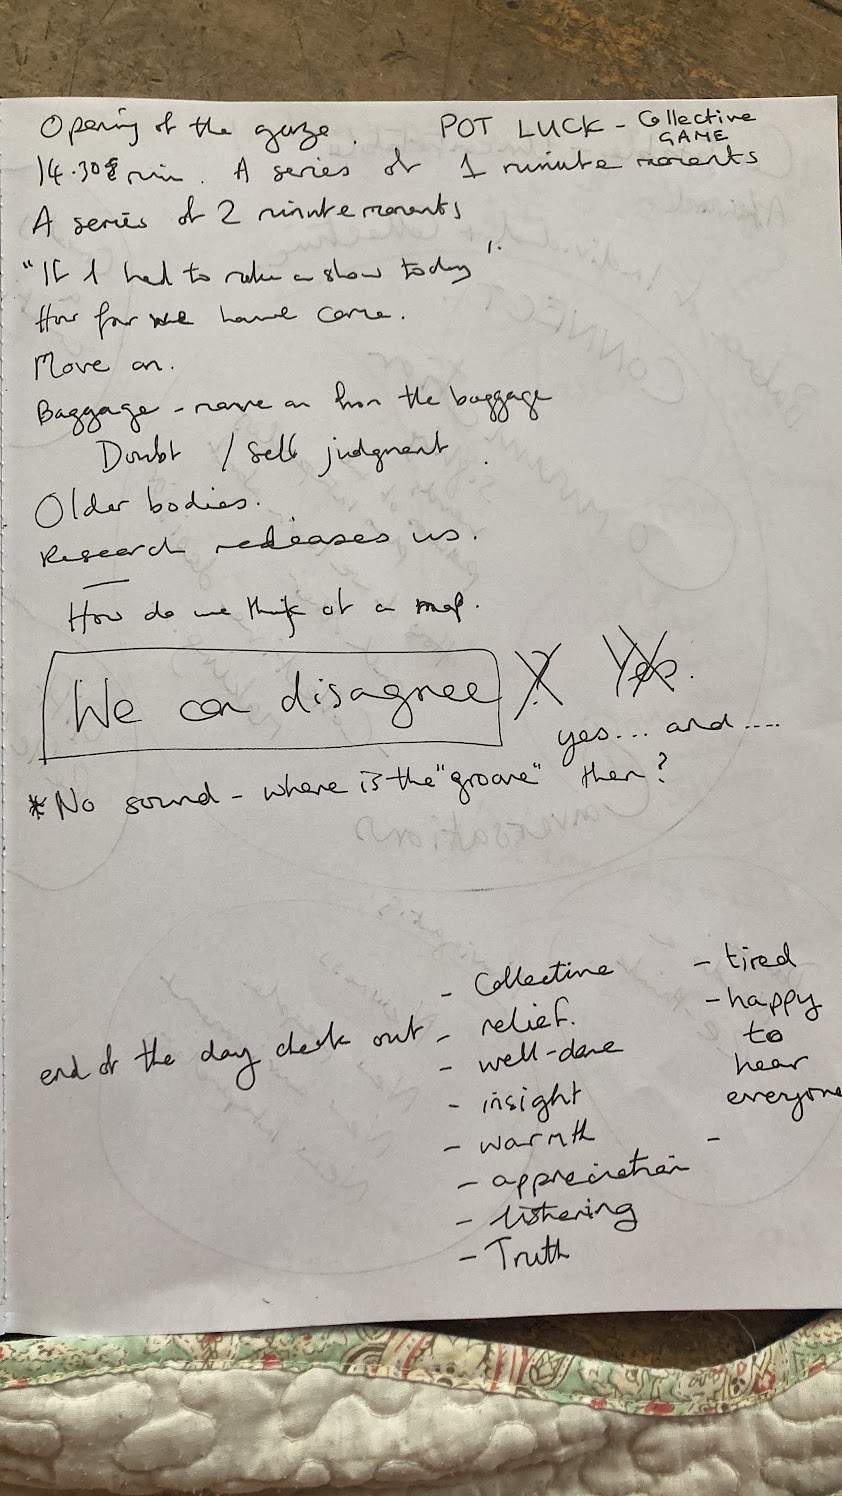 Opening of the gaze. POT LUCK - Collective GAME
14.30 min. A series of 1 minute moments
A series of 2 minute moments
"If I had to make a show today".
How far we have come.
Move on.
Baggage - move on from the baggage
Doubt / self judgment.
Older bodies.
Research releases us.
How do we think of a map.
We can disagree ? Yes.
yes... and ....
*No sound - where is the "groove" then?
end of the day check out
- Collective
- relief.
- well-done
- insight
- warmth
- appreciation
- listening
- Truth
- tired
- happy
to
hear
everyone
-